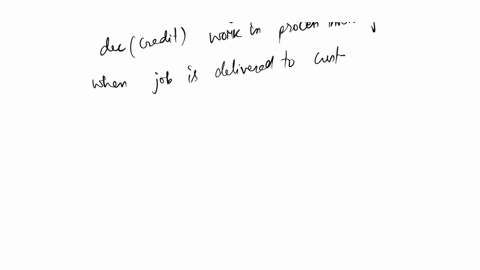 dec (credit) work in process
when job is delivered to cust